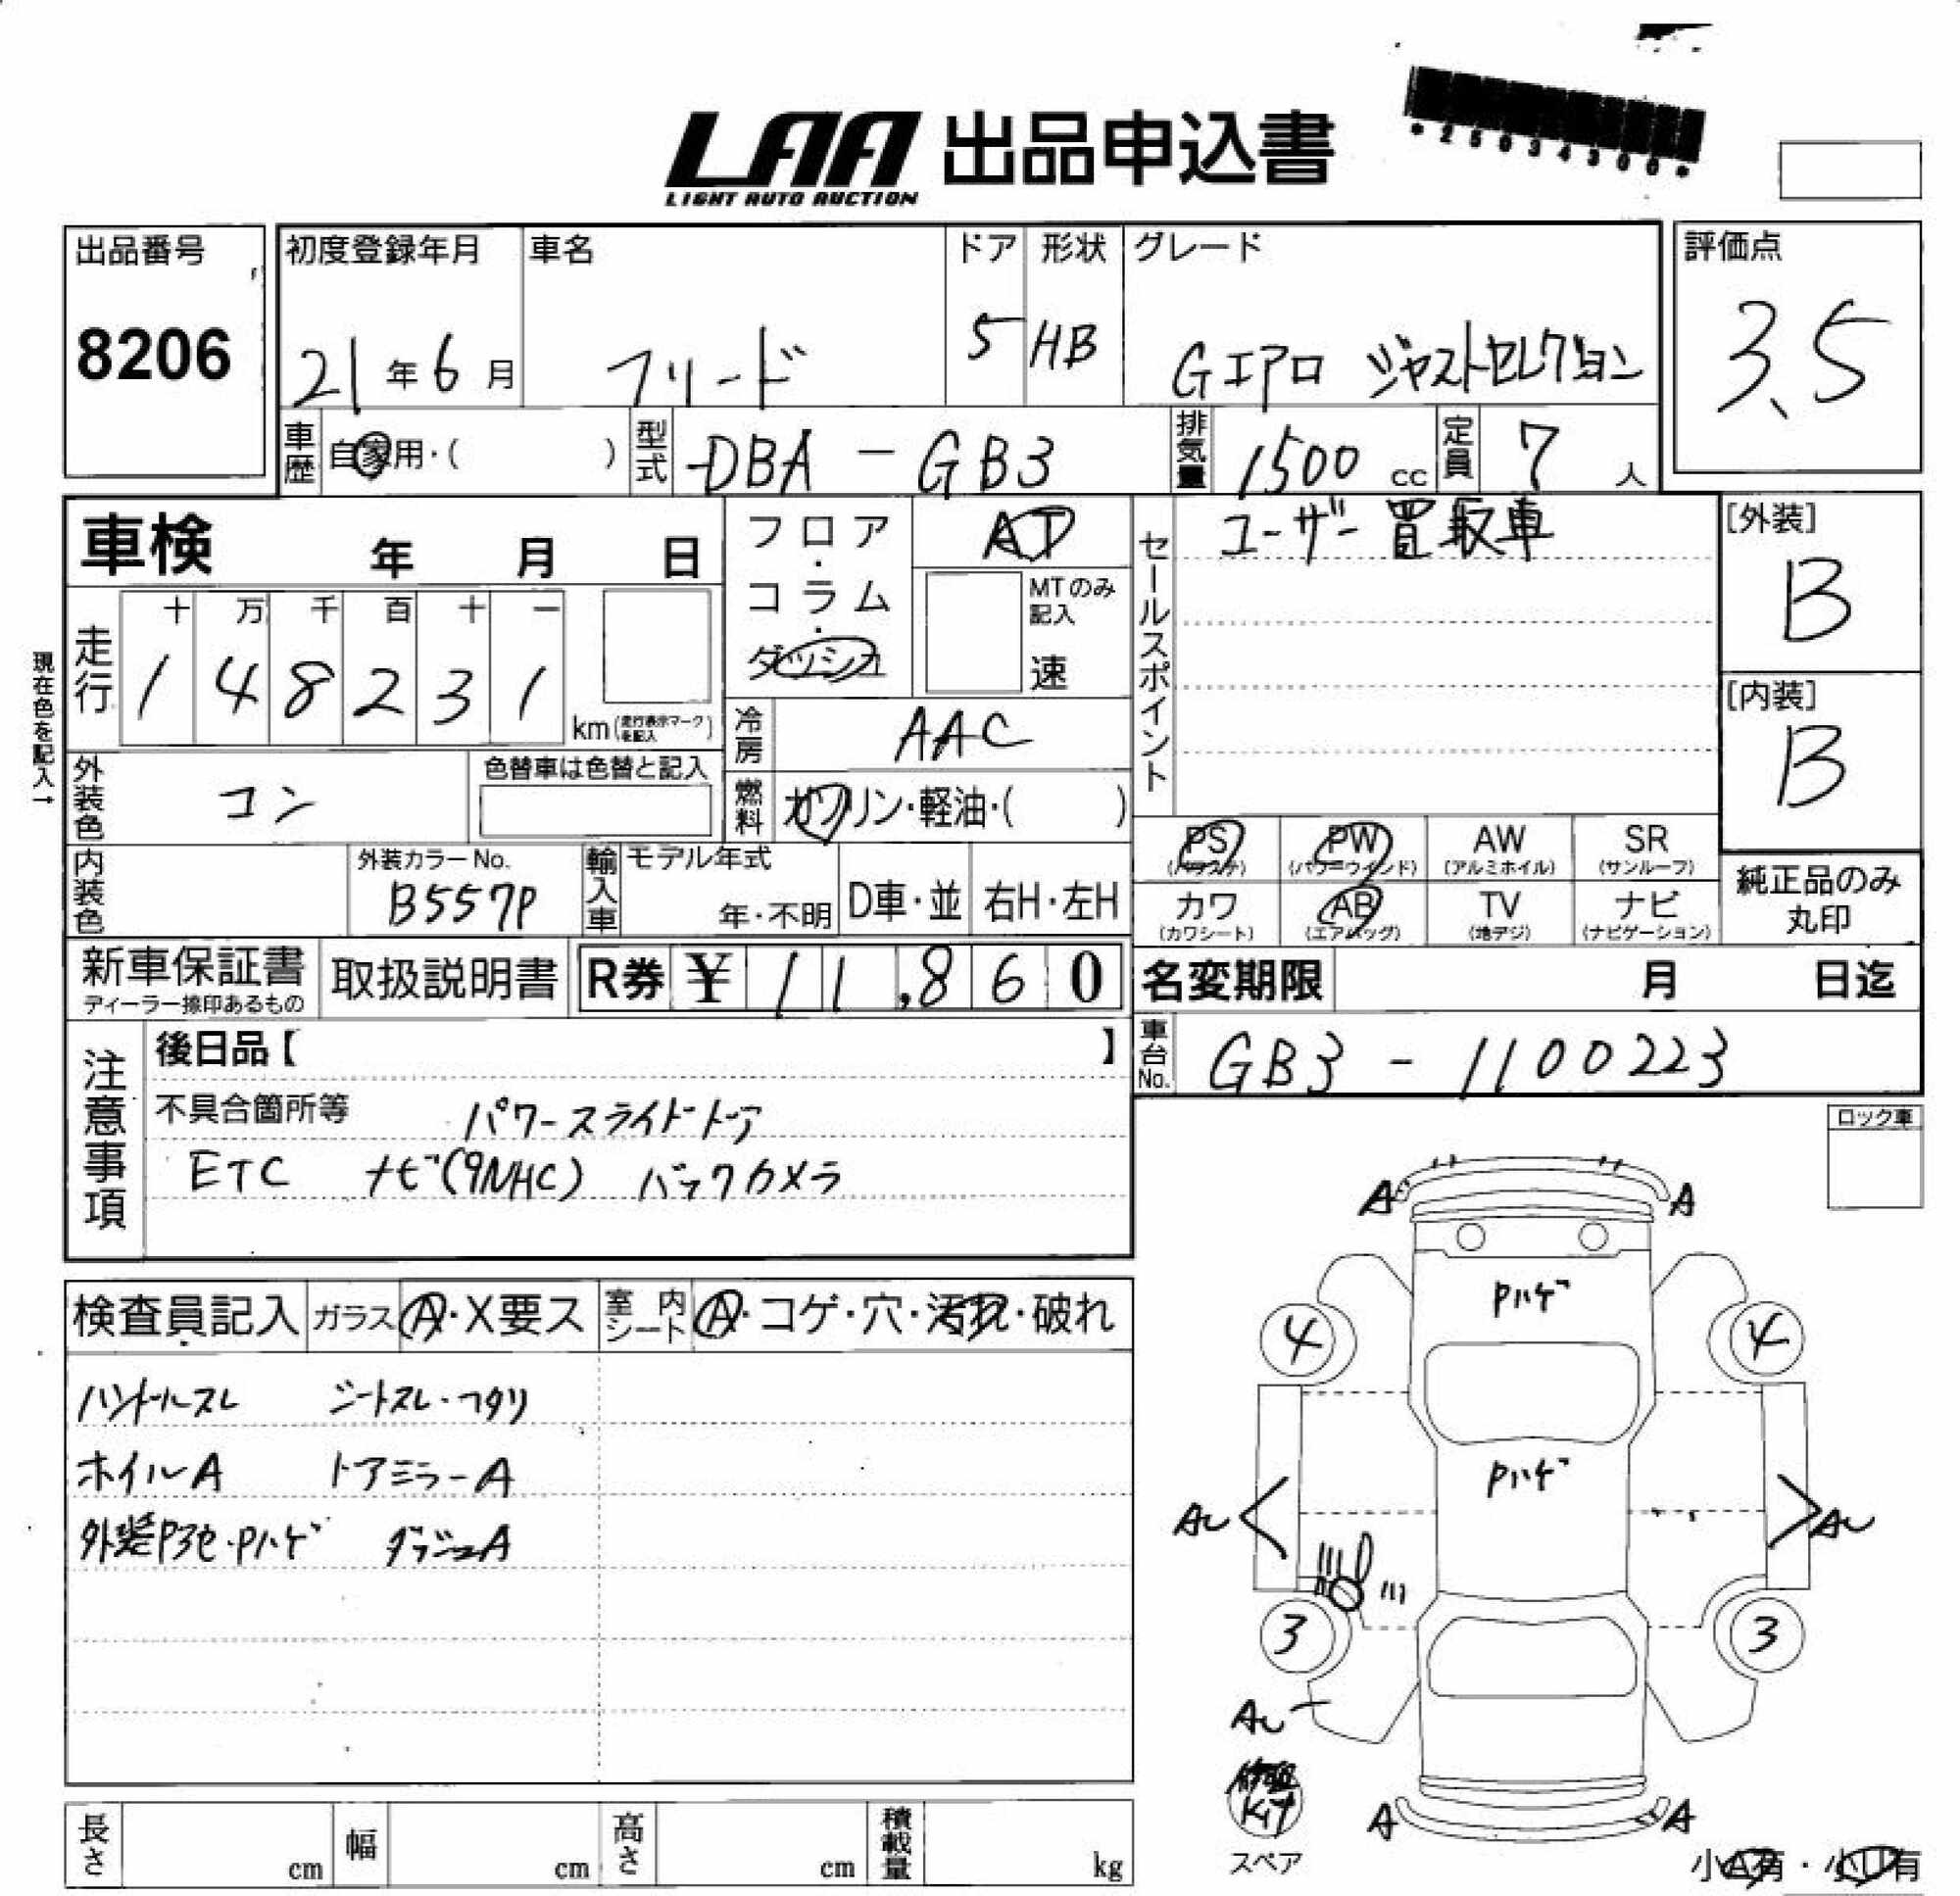 LAA 出品申込書
LIGHT AUTO AUCTION
*25034300*
出品番号
8206
初度登録年月
21年6月
車名
フリード
ドア
5
形状
HB
グレード
Gエアロ ジャストセレクション
評価点
3.5
車歴
自家用・( )
型式
DBA - GB3
排気量
1500 cc
定員
7 人
車検 年 月 日
フロア・コラム・ダッシュ
AT
MTのみ記入
速
セールスポイント
ユーザー買取車
[外装]
B
[内装]
B
現在色を記入→
走行
十 万 千 百 十 一
1 4 8 2 3 1
km(走行表示マークを記入)
冷房
AAC
外装色
コン
色替車は色替と記入
燃料
ガソリン・軽油・( )
PS AW SR
PW
(パワステ) (パワーウインド) (アルミホイル) (サンルーフ)
カワ AB TV ナビ
(カワシート) (エアバッグ) (地デジ) (ナビゲーション)
純正品のみ
丸印
内装色
外装カラーNo.
B557P
輸入車
モデル年式
年・不明
D車・並
右H・左H
新車保証書
ディーラー捺印あるもの
取扱説明書
R券 ¥ 11,860
名変期限 月 日迄
車台No.
GB3 - 1100223
注意事項
後日品【 】
不具合箇所等 パワースライドドア
ETC ナビ(9NHC) バックカメラ
ロック車
検査員記入
ガラス A・X要ス
室内シート A・コゲ・穴・汚れ・破れ
ハンドルスレ シートスレ・ヘタリ
ホイルA ドアミラーA
外装Pハゲ ダッシュA
A A
Pハゲ
4 4
Pハゲ
AU AU
3 3
AU
修理
Kit
スペア
A A
小A有・小U有
長さ cm
幅 cm
高さ cm
積載量 kg